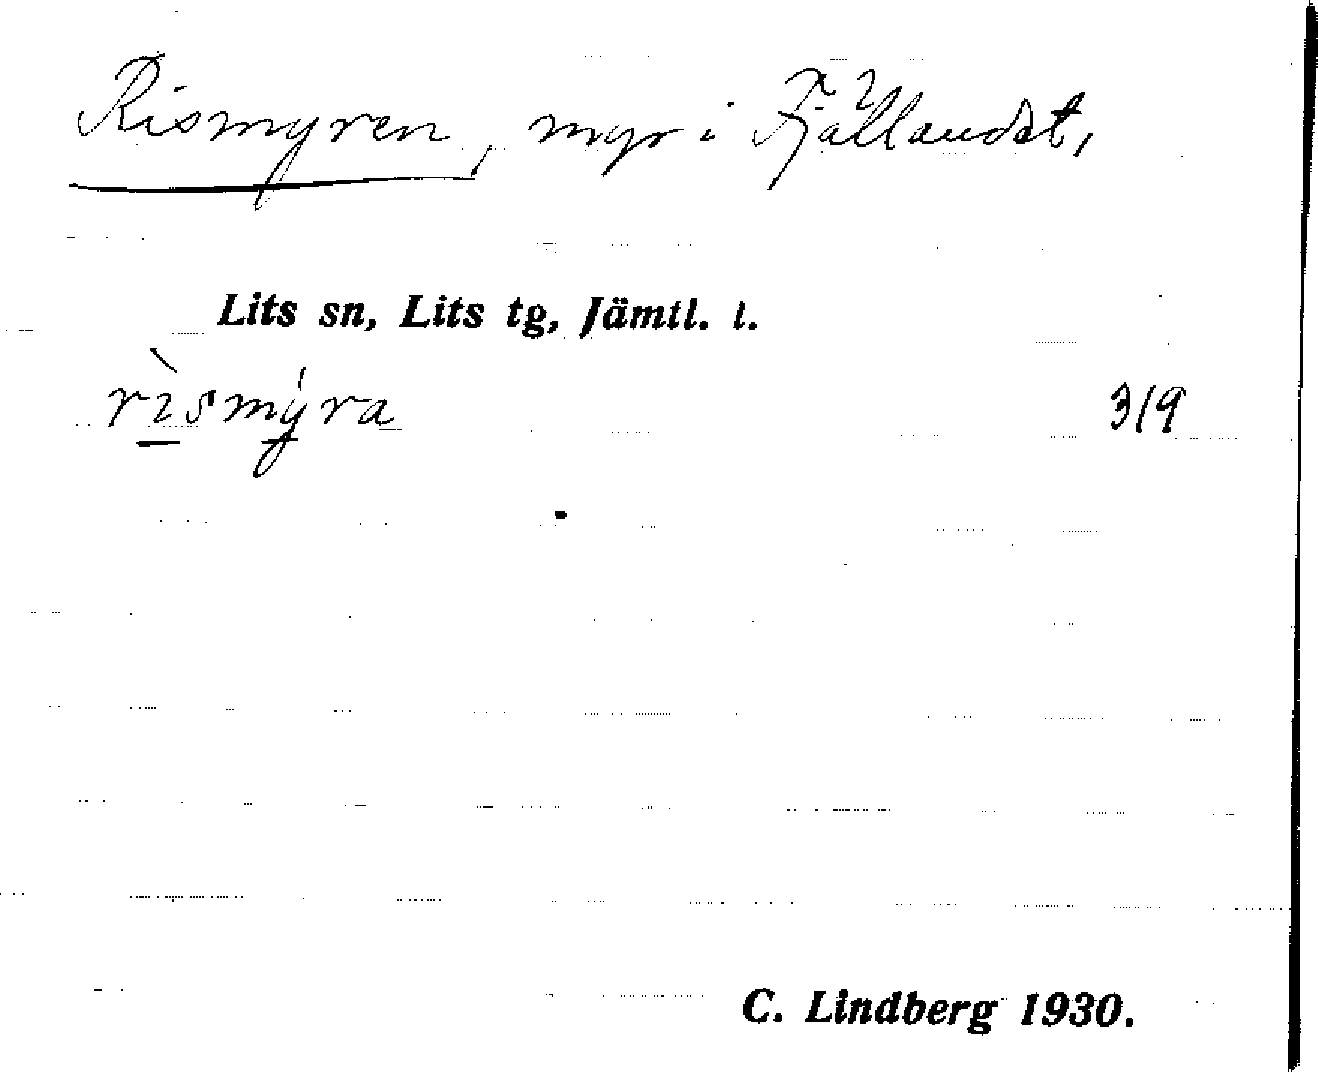 Rismyren, myr i Fjällandet,
Lits sn, Lits tg, Jämtl. l.
rìsmýra 319
C. Lindberg 1930.